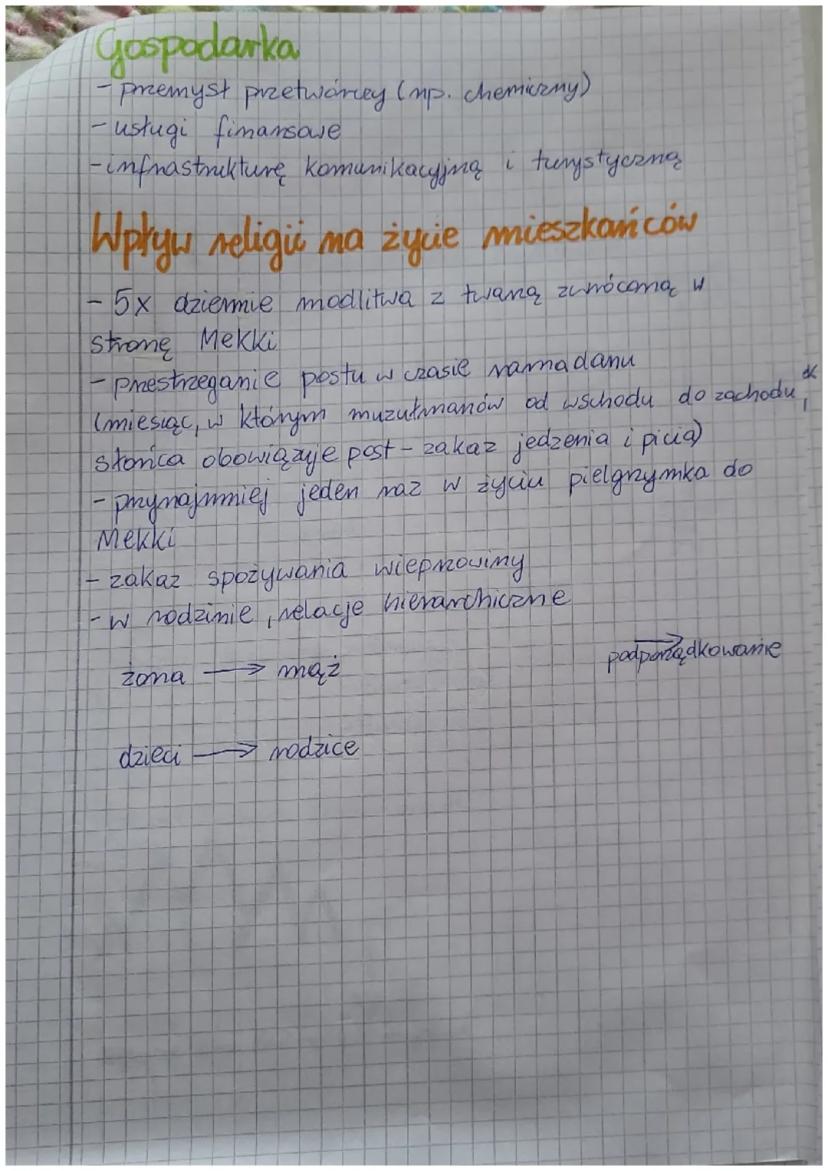 Gospodarka
- przemysł przetwórczy (np. chemiczny)
- usługi finansowe
- infrastrukturę komunikacyjną i turystyczną
Wpływ religii na życie mieszkańców
- 5x dziennie modlitwa z twarzą zwróconą w
stronę Mekki
- przestrzeganie postu w czasie ramadanu
(miesiąc, w którym muzułmanów od wschodu do zachodu
słońca obowiązuje post - zakaz jedzenia i picia)
- przynajmniej jeden raz w życiu pielgrzymka do
Mekki
- zakaz spożywania wieprzowiny
- w rodzinie, relacje hierarchiczne
żona → mąż
→
podporządkowanie
dzieci → rodzice